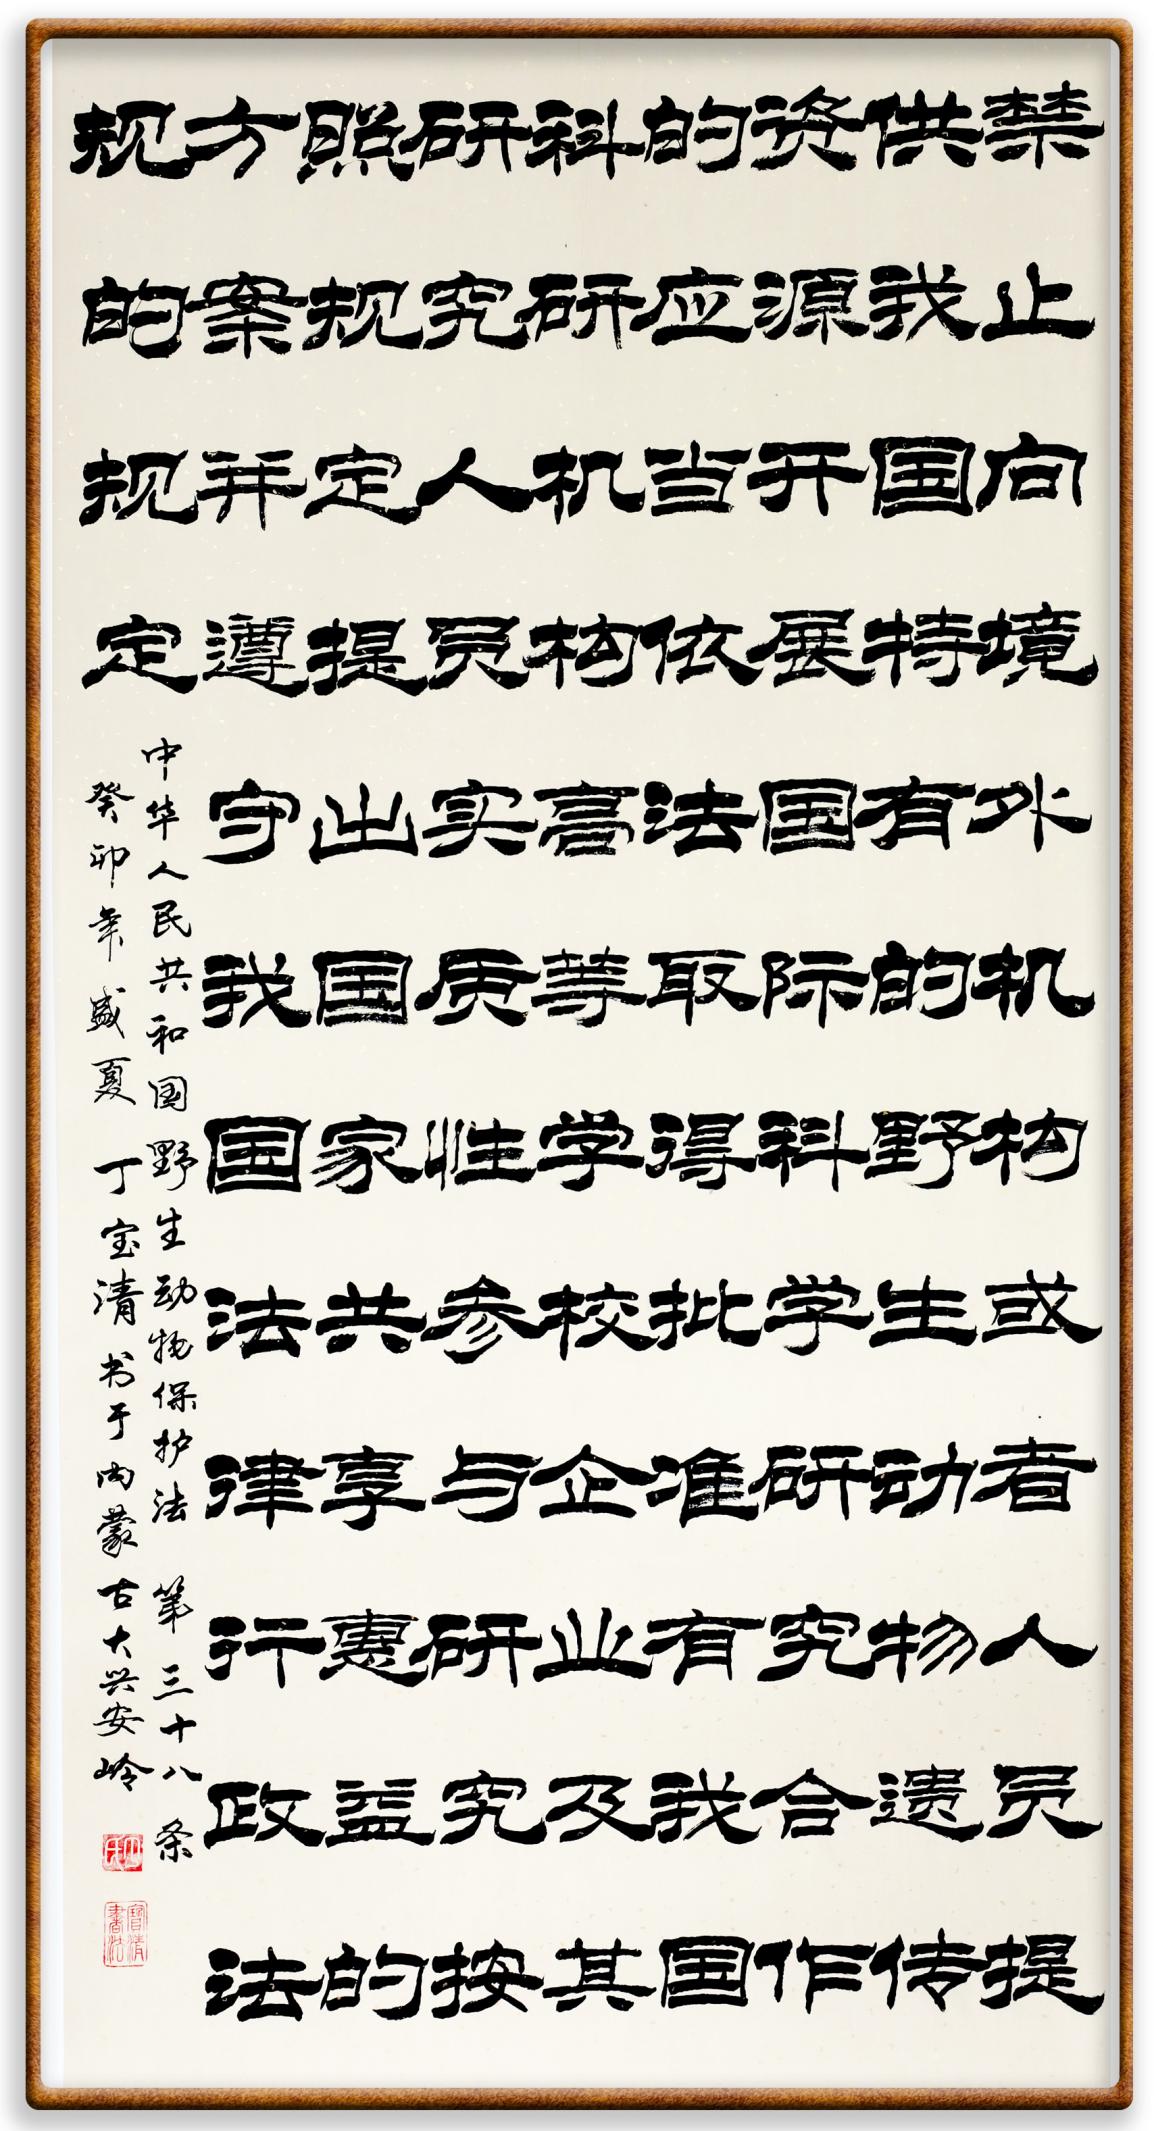 禁止向境外机构或者人员提
供我国特有的野生动物遗传
资源开展国际科学研究合作
的应当依法取得批准有我国
科研机构高等学校企业及其
研究人员实质性参与研究按
照规定提出国家共享惠益的
方案并遵守我国法律行政法
规的规定
中华人民共和国野生动物保护法 第三十八条
癸卯年盛夏 丁宝清 书于内蒙古大兴安岭
寶清書法